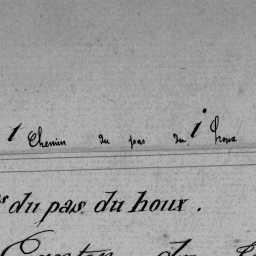 1 Chemin du pas du 1 houx
du pas du houx.
Canton du